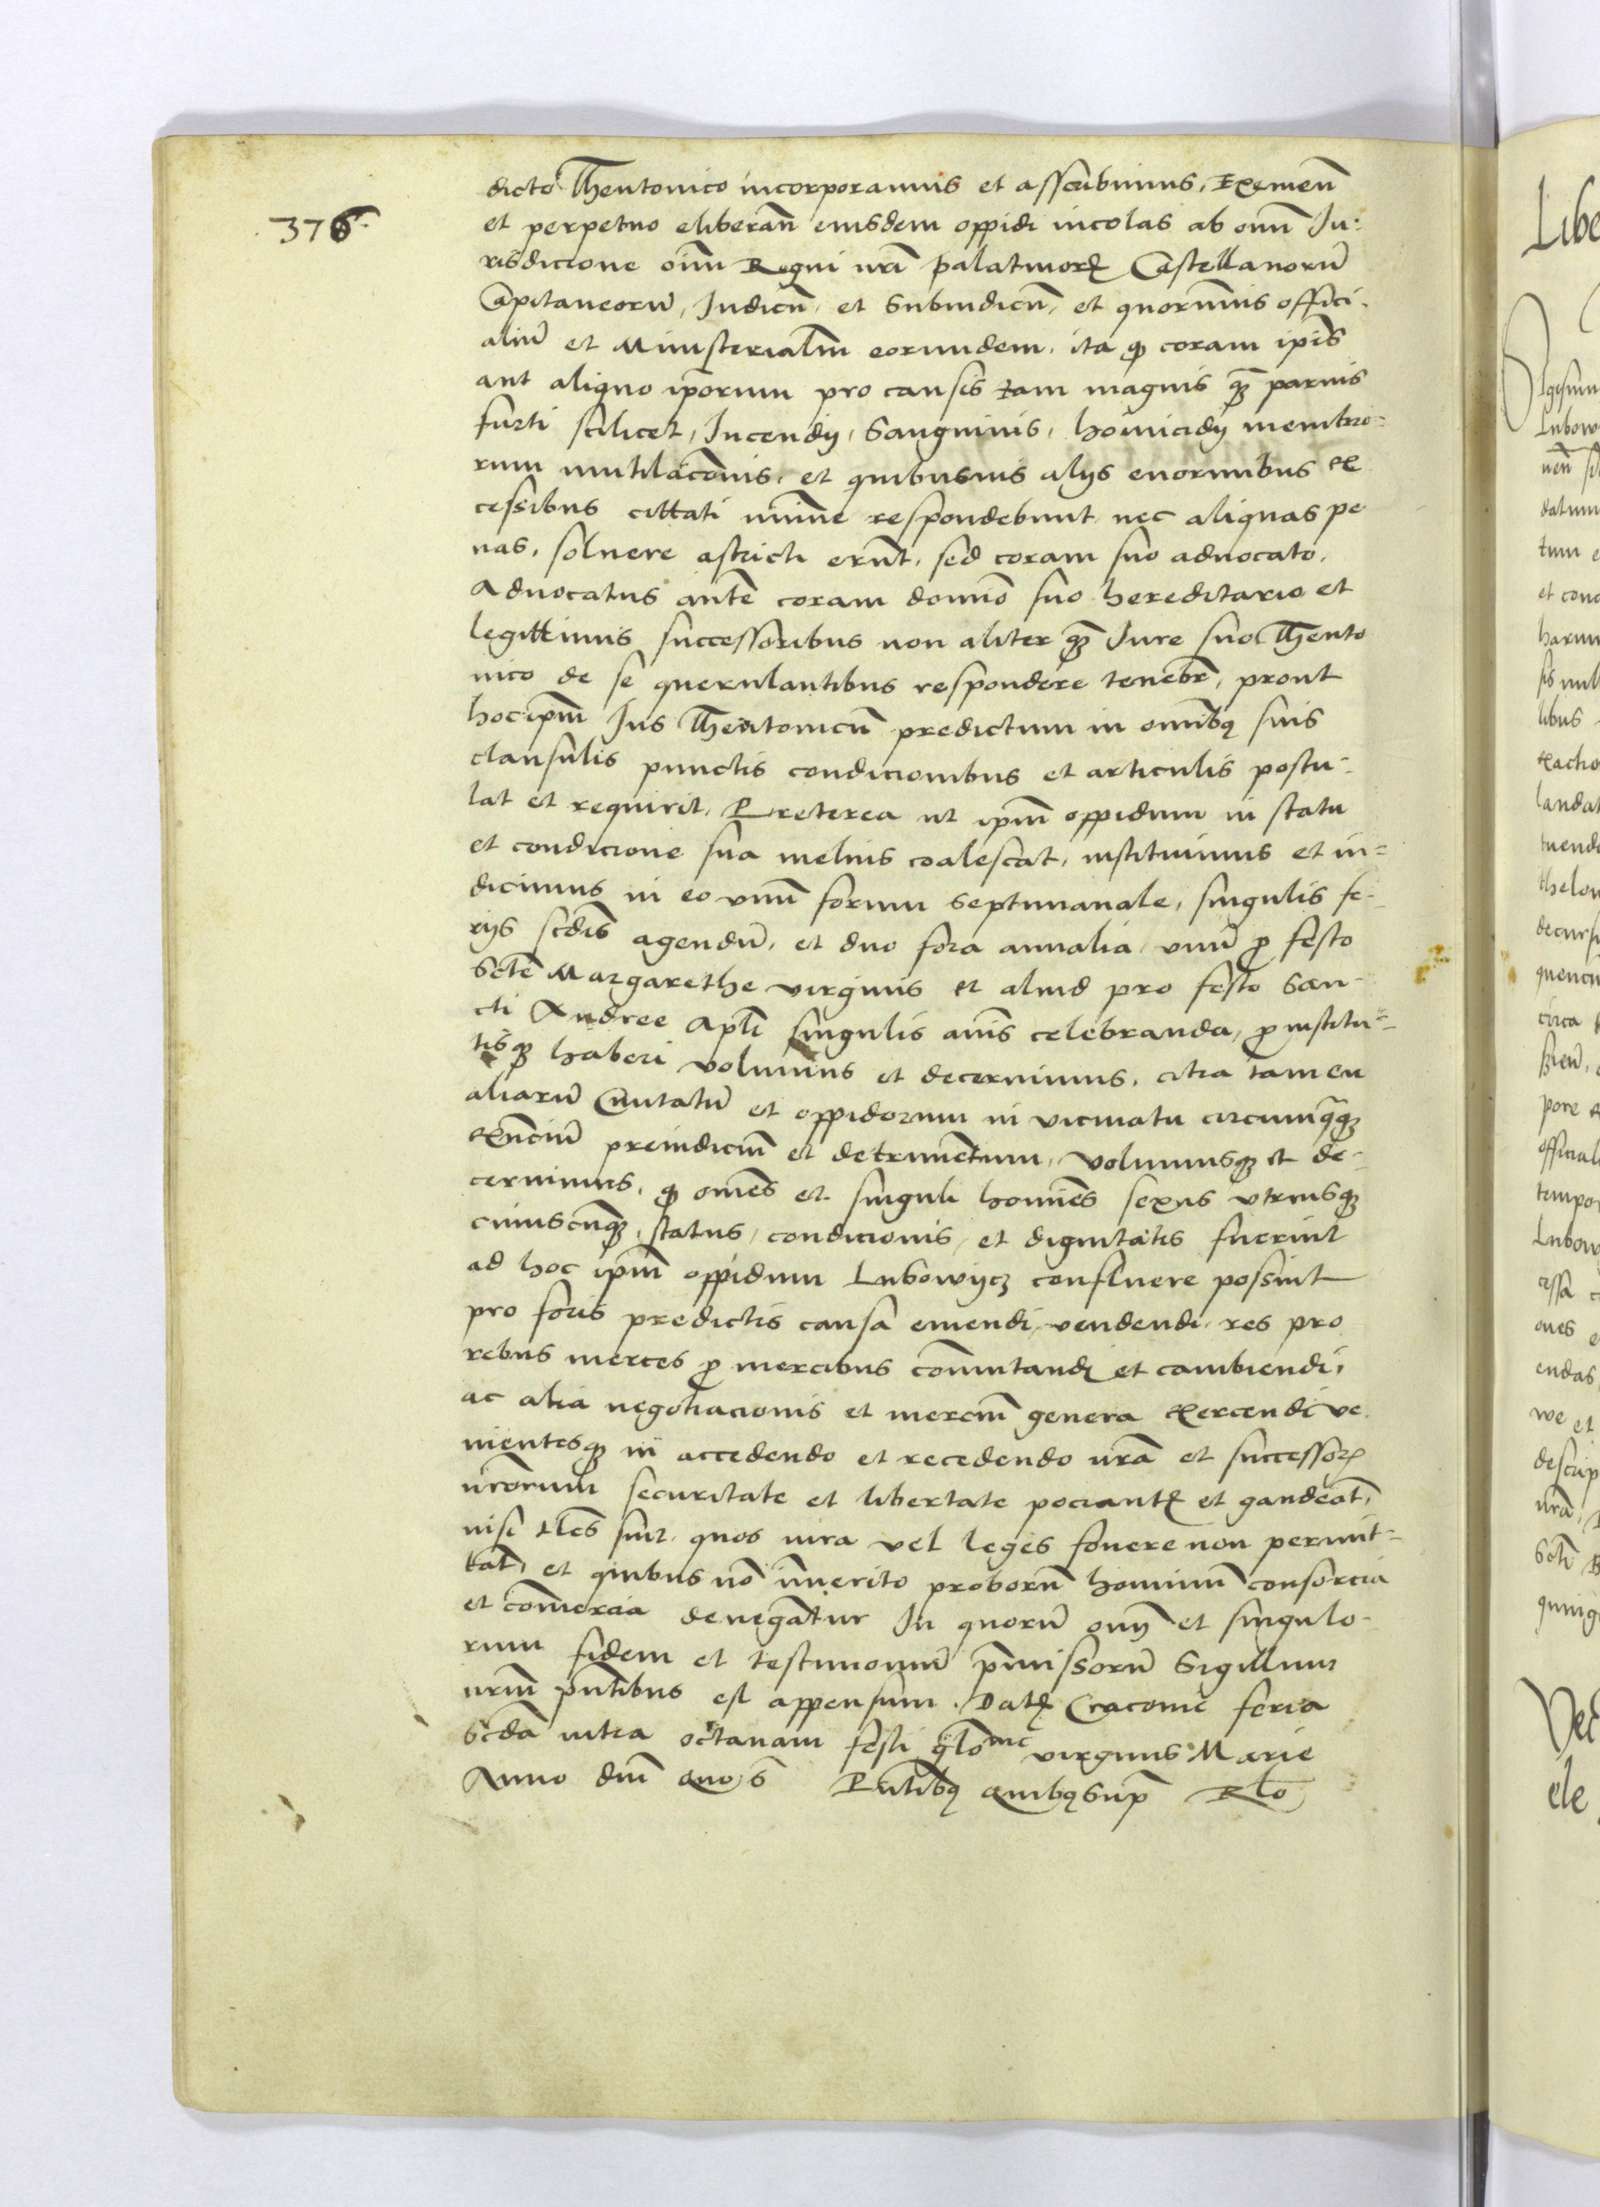 376
dicto Thentonico incorporamus et asscribimus, Eximeñ
et perpetuo eliberañ eiusdem oppidi incolas ab omñ Iu-
risdicione oĩm Regni nrĩ palatinorꝝ Castellanorũ
Capitaneorũ, Iudicũ, et Subiudicũ, et quorumuis offici-
aliũ et Ministerialĩm eorundem, ita ꝙ coram ipĩs
aut aliquo ip̃orum pro causis tam magnis q̃ꝫ paruis
furti scilicet, Incendij, Sanguinis, homicidij membro-
rum mutilac̃onis, et quibusuis alijs enormibus ex
cessibus cittati minĩe respondebunt nec aliquas pe
nas, soluere astricti erũt, sed coram suo aduocato,
Aduocatus aut̃e coram domĩo suo hereditario et
legittimis successoribus non aliter q̃ꝫ Iure suo Thento
nico de se querulantibus respondere tenebr̃, prout
hoc ip̃m Ius Theutonicũ predictum in omĩbꝫ suis
clausulis punctis condicionibus et articulis postu-
lat et requirit, Preterea ut ip̃m oppidum in statu
et condicione sua melius coalescat, instituimus et in-
dicimus in eo vnũ forum Septimanale, singulis fe-
rijs sc̃dis agendũ, et duo fora annalia vnũ ꝓ festo
Sc̃te Margarethe virginis et aliud pro festo San-
cti Andree apl̃i singulis anĩs celebranda, ꝓ institu-
tisqꝫ haberi volumus et decernimus, citra tamen
aliarũ Ciuitatũ et oppidorum in vicinatu circumq̃qꝫ
exñciũ preiudiciũ et detrimẽtum, Volumusqꝫ et de-
cernimus, ꝙ om̃es et singuli homĩes sexus vtriusqꝫ
cuiuscũqꝫ, status, condicionis, et dignitatis fuerint
ad hoc ip̃m oppidum Lubowijcz confluere possint
pro foris predictis causa emendi, vendendi, res pro
rebus merces ꝓ mercibus com̃utandi et cambiendi,
ac alia negotiacionis et merciũ genera exercendi ve
nientesqꝫ in accedendo et recedendo nrã et successoꝝ
nr̃orum securitate et libertate pociantꝝ et gaudeãt,
nisi tl̃es sint, quos iura vel leges fouere non permit-
tãt, et quibus nõ im̃erito proborũ hominũ consorcia
et com̃ercia denegãtur In quorũ om̃ et singulo-
rum fidem et testimoniũ p̃missorũ Sigillum
nrũm pñtibus est appensum. Datꝝ Cracouie feria
Sc̃da intra octauam festi glo͠ virginis Marie
Anno dnĩ quo s̃ Pñtibꝫ quibꝫ Sup̃ Rlõ